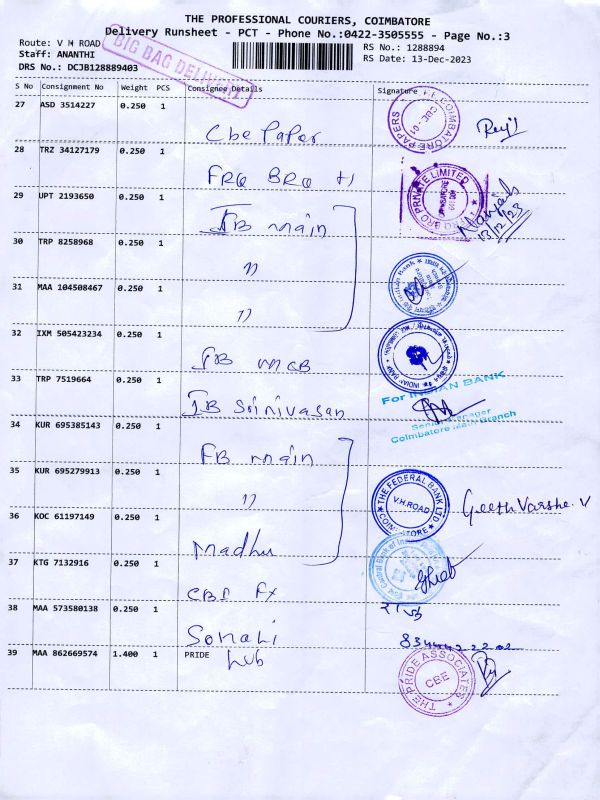 THE PROFESSIONAL COURIERS, COIMBATORE
Delivery Runsheet - PCT - Phone No.:0422-3505555 - Page No.:3
Route: V H ROAD
RS No.: 1288894
Staff: ANANTHI
RS Date: 13-Dec-2023
DRS No.: DCJB128889403
BIG BAG DELIVERY
S No Consignment No Weight PCS Consignee Details Signature
27 ASD 3514227 0.250 1
Cbe Paper
COIMBATORE PAPERS
28 TRZ 34127179 0.250 1
FRQ BRQ
BRO PRIVATE LIMITED
29 UPT 2193650 0.250 1
IB main
13/12/23
30 TRP 8258968 0.250 1
"
31 MAA 104508467 0.250 1
"
32 IXM 505423234 0.250 1
IB MCB
INDIAN BANK
33 TRP 7519664 0.250 1
IB Srinivasan
For INDIAN BANK
Senior Manager
Coimbatore Main Branch
34 KUR 695385143 0.250 1
FB main
35 KUR 695279913 0.250 1
"
THE FEDERAL BANK LTD
V.H.ROAD
COIMBATORE
Geeth Varshe. V
36 KOC 61197149 0.250 1
Madhu
37 KTG 7132916 0.250 1
CBI Fx
Central Bank of India
38 MAA 573580138 0.250 1
Sonali
39 MAA 862669574 1.400 1 PRIDE
hub
THE PRIDE ASSOCIATES
CBE